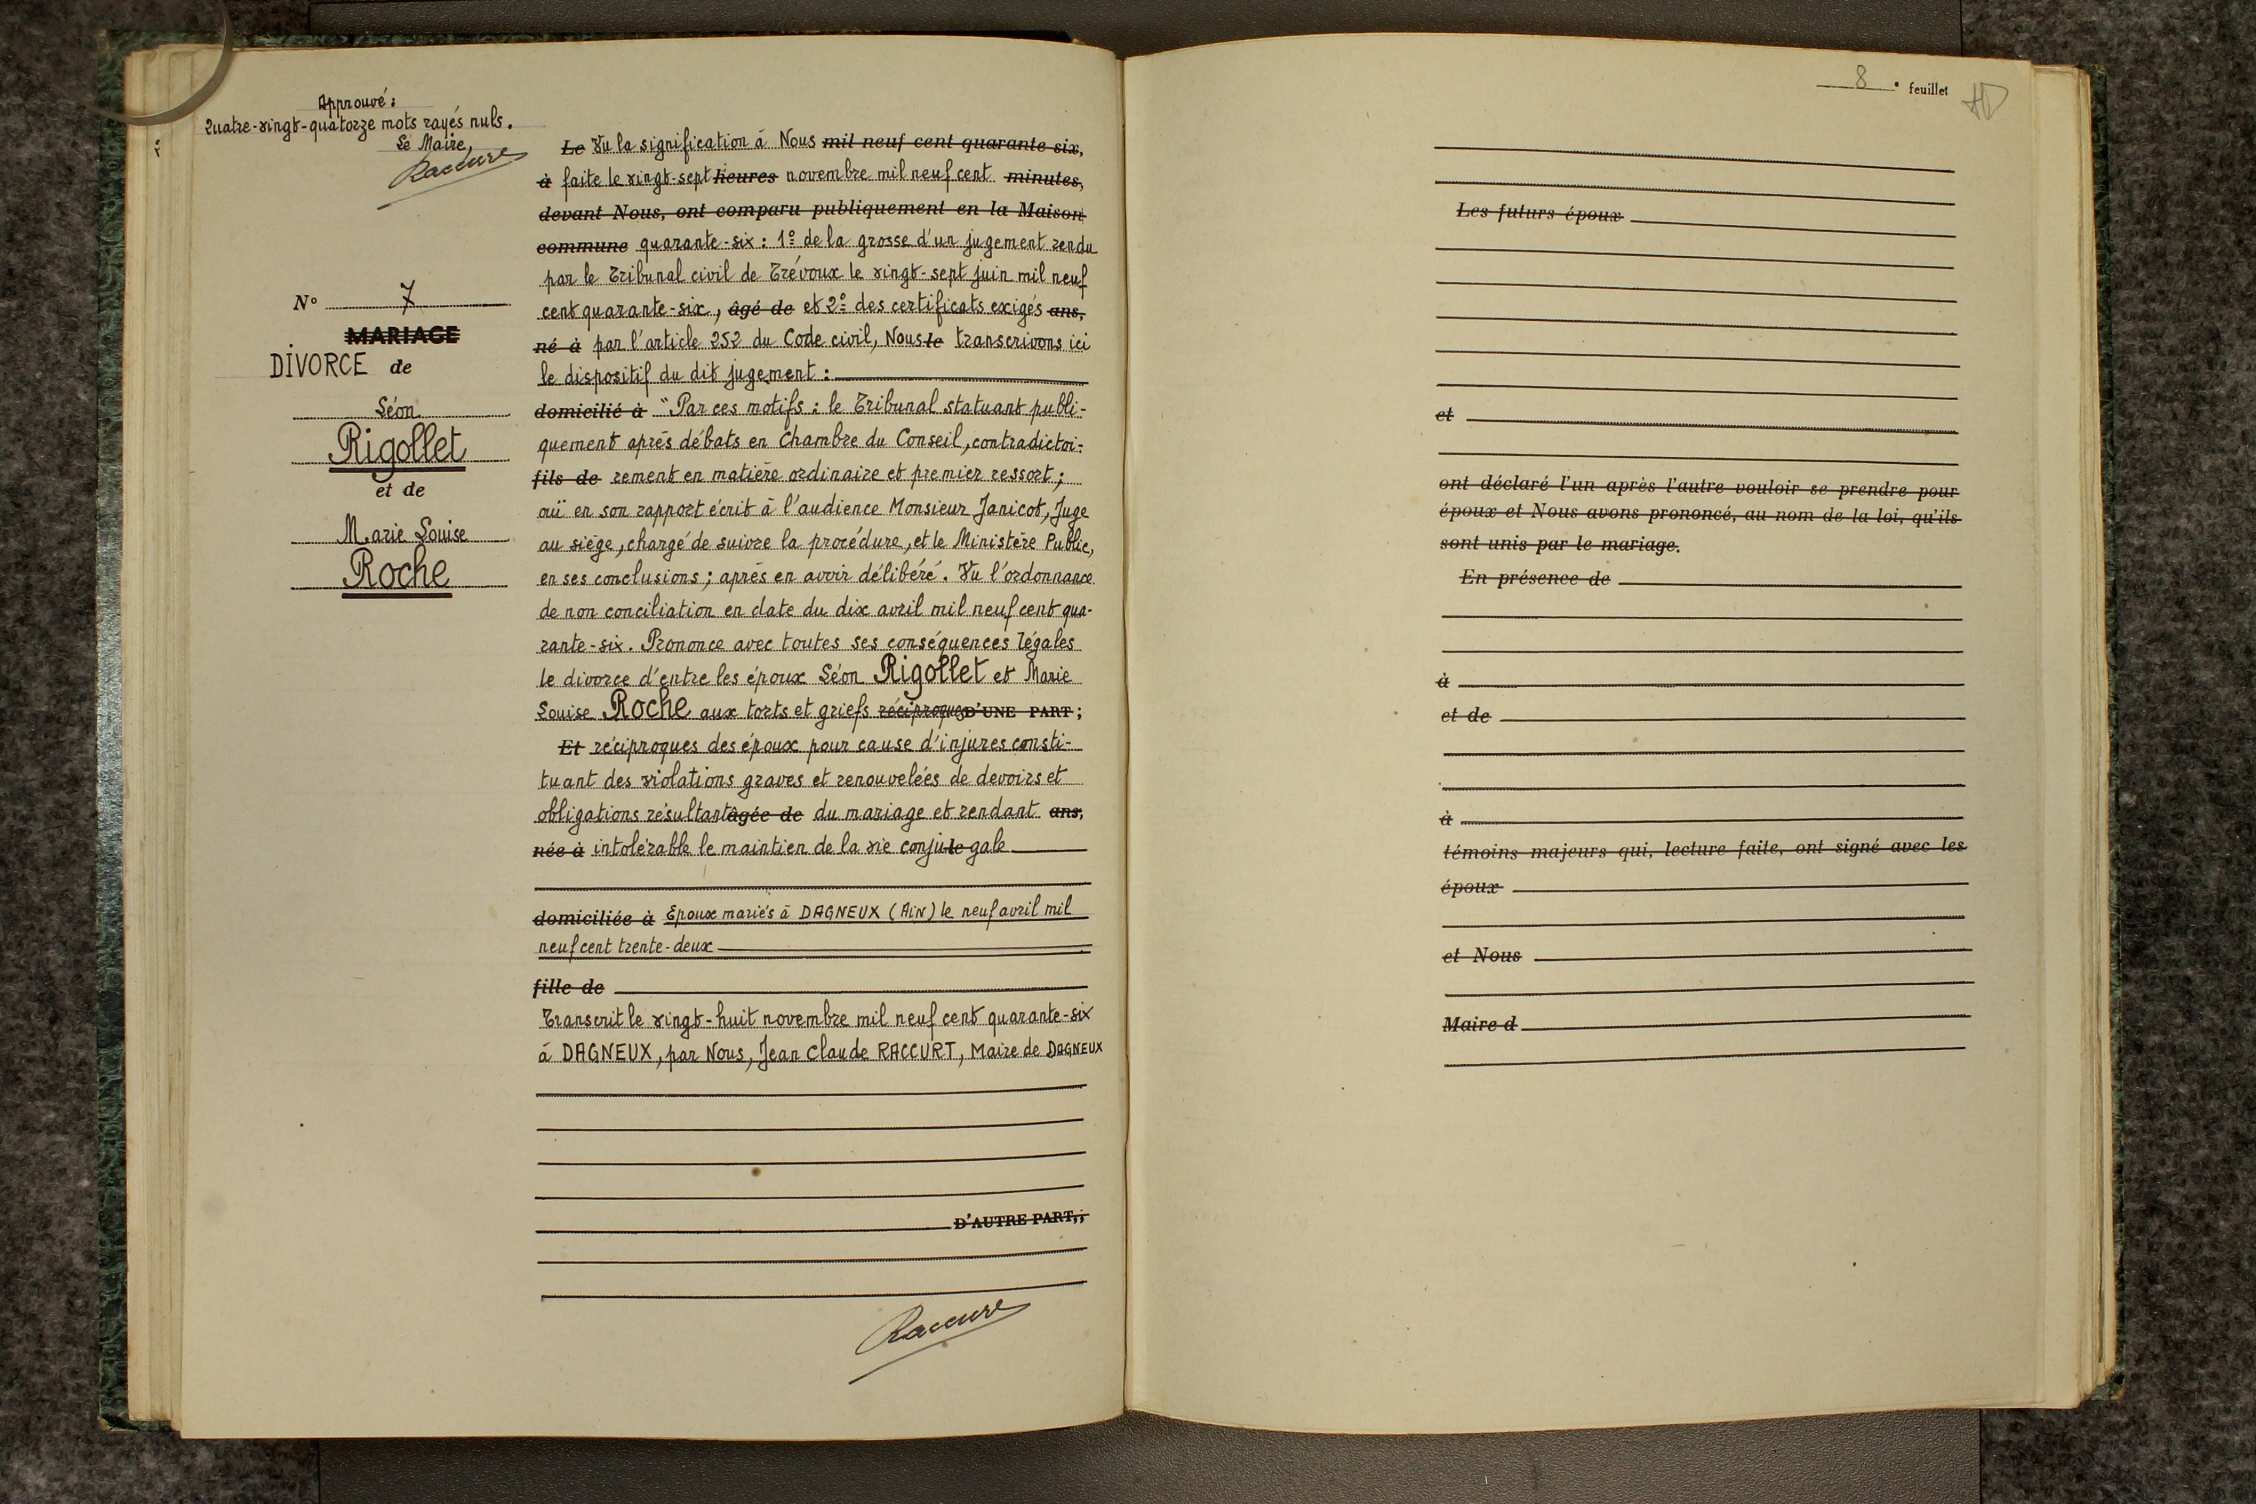 Approuvé :
Quatre-vingt-quatorze mots rayés nuls.
Le Maire,
Raccurt
Le Vu la signification à Nous mil neuf cent quarante six,
à faite le vingt-sept heures novembre mil neuf cent minutes,
devant Nous, ont comparu publiquement en la Maison
commune quarante-six : 1º de la grosse d'un jugement rendu
par le Tribunal civil de Trévoux le vingt-sept juin mil neuf
cent quarante-six, âgé de et 2º des certificats exigés ans,
né à par l'article 252 du Code civil, Nous le transcrivons ici
le dispositif du dit jugement :
domicilié à "Par ces motifs : le Tribunal statuant publi-
quement après débats en Chambre du Conseil, contradictoi-
fils de rement en matière ordinaire et premier ressort ;
ouï en son rapport écrit à l'audience Monsieur Janicot, Juge
au siège, chargé de suivre la procédure, et le Ministère Public,
en ses conclusions ; après en avoir délibéré. Vu l'ordonnance
de non conciliation en date du dix avril mil neuf cent qua-
rante-six. Prononce avec toutes ses conséquences légales
le divorce d'entre les époux Léon Rigollet et Marie
Louise Roche aux torts et griefs réciproques D'UNE PART ;
Et réciproques des époux pour cause d'injures consti-
tuant des violations graves et renouvelées de devoirs et
obligations résultant âgée de du mariage et rendant ans,
née à intolérable le maintien de la vie conju le gale
domiciliée à Epoux mariés à DAGNEUX (AiN) le neuf avril mil
neuf cent trente-deux
fille de
Transcrit le vingt-huit novembre mil neuf cent quarante-six
à DAGNEUX, par Nous, Jean Claude RACCURT, Maire de DAGNEUX
D'AUTRE PART, ;
Raccurt
Nº 7
MARIAGE
DIVORCE de
Léon
Rigollet
et de
Marie Louise
Roche
8 e feuillet
Les futurs époux
et
ont déclaré l'un après l'autre vouloir se prendre pour
époux et Nous avons prononcé, au nom de la loi, qu'ils
sont unis par le mariage.
En présence de
à
et de
à
témoins majeurs qui, lecture faite, ont signé avec les
époux
et Nous
Maire d